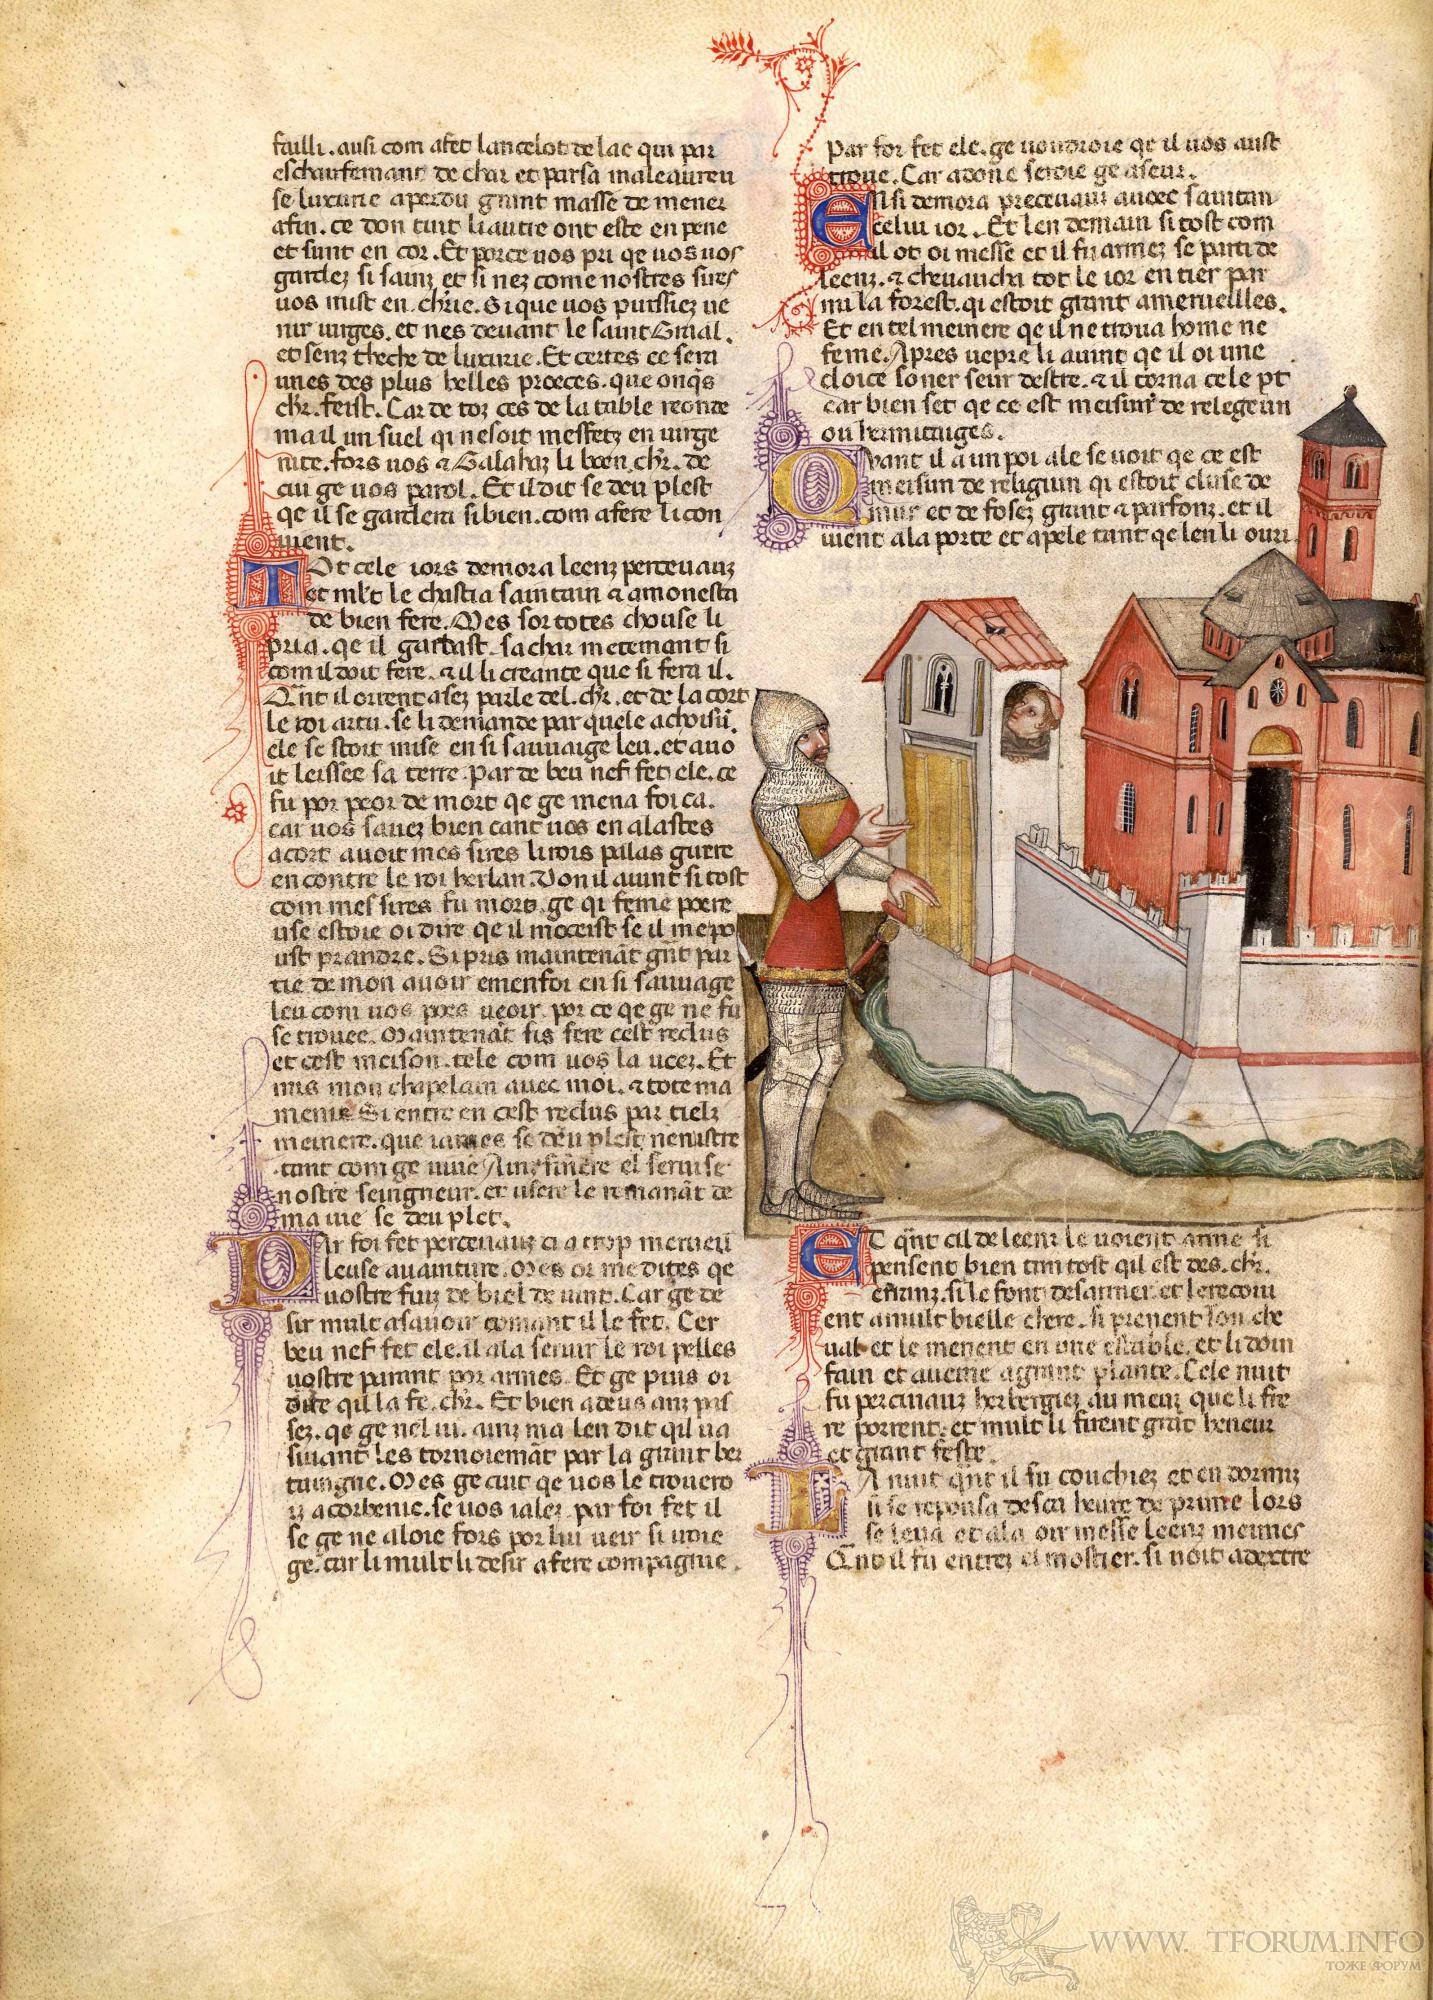 failli. ausi com a fet lancelot de lac qui par
eschaufemant de char et par sa maleaureu
se luxurie a perdu grant masse de mener
a fin. ce don tuit li autre ont este en pene
et sunt encor. Et porce vos pri qe vos vos
gardez si sainz et si nez come nostres sires
vos mist en chrie. Si que vos puissiez ve
nir virges. et nes devant le saint Graal.
et senz theche de luxurie. Et certes ce sera
unes des plus belles proeces. que onqs
chr. feist. Car de toz ces de la table reonde
ma il un suel qi ne soit meffetz en virge
nite. fors vos & Galahaz li boen chr. de
cui ge vos parol. Et il dit se deu plest
qe il se gardera si bien. com a fere li con
vient.
Tot cele iors demora leenz percevauz
et mlt le chastia sa antain & amonesta
de bien fere. Mes sor totes chouse li
pria. qe il gardast sa char netemant si
com il doit fere. & il li creante que si fera il.
Qnt il orrent asez parle del chr. et de la cort
le roi artu. se li demande par quele achoisun
ele se stoit mise en si sauvaige leu. et avo
it leissee sa terre. Par de beu nef fet ele. ce
fu por peor de mort qe ge mena foi ca.
car vos savez bien cant vos en alastes
a cort avoit mes sires li rois pallas guerre
encontre le roi herlan. Don il avint si tost
com mes sires fu mors. ge qi feme poere
use estoie oi dire qe il moceist se il me po
ust prandre. Si pris maintenat gnt par
tie de mon avoir e men foi en si sauvage
leu com vos poes veoir. por ce qe ge ne fu
se trovee. Maintenat fis fere cest reclus
et cest meison. tele com vos la veez. Et
mis mon chapelain avec moi. & tote ma
menie. Si entre en cest reclus par tielz
meinere. que iames se deu plest nen istre
tant com ge vivie. Ainz finere el servise
nostre seingneur. et usere le remanat de
ma vie se deu plet.
Par foi fet percevauz ci a trop merveu
leuse avainture. Mes or me dites qe
vostre fuiz de biel devint. Car ge de
sir mult a savoir comant il le fet. Cer
beu nef fet ele. il ala servir le roi pelles
vostre parant por armes. Et ge puis oi
dire qil la fe. chr. Et bien a deus anz pas
sez. qe ge nel vi. ainz ma len dit qil va
suiant les tornoiemat par la grant ber
taingne. Mes ge cuit qe vos le trouero
iz a corbenic. se vos i alez par foi fet il
se ge ne aloie fors por lui veir si iroie
ge. car li mult li desir a fere compagnie.
Par foi fet ele. ge voudroie qe il vos aust
trove. Car adonc seroie ge aseur.
Ensi demora precevauz avoec sa antan
celui ior. Et len demain si tost com
il ot oi messe et il fu armez se parti de
leenz. & chevaucha tot le ior entier par
mi la forest. qi estoit grant a merveilles.
Et en tel meinere qe il ne trova home ne
feme. Apres vepre li avint qe il oi une
cloice soner seur destre. & il torna cele pt
car bien set qe ce est meisun de relegeun
ou hermitaiges.
Quant il a un poi ale se voit qe ce est
meisun de religiun qi estoit cluse de
mur et de fosez granz & parfonz. et il
vient a la porte et apele tant qe len li ouri.
Et qnt cil de leenz le voient arme si
pensent bien tantost qil est des. chr.
erranz. si le font desarmer et le recoiu
ent a mult bielle chere. Si prenent son che
val et le menent en une estable. et li doin
fain et aveine a grant plante. Cele nuit
fu percivauz herbergiez au meuz que li fre
re porrent. et mult li firent grat heneur
et grant feste.
La nuit qnt il fu couchiez et en dormiz
si se reposa desca heure de prime lors
se leva et ala oir messe leenz meimes
Qnt il fu entrez el mostier. si voit a dextre
WWW. TFORUM.INFO
ТОЖЕ ФОРУМ